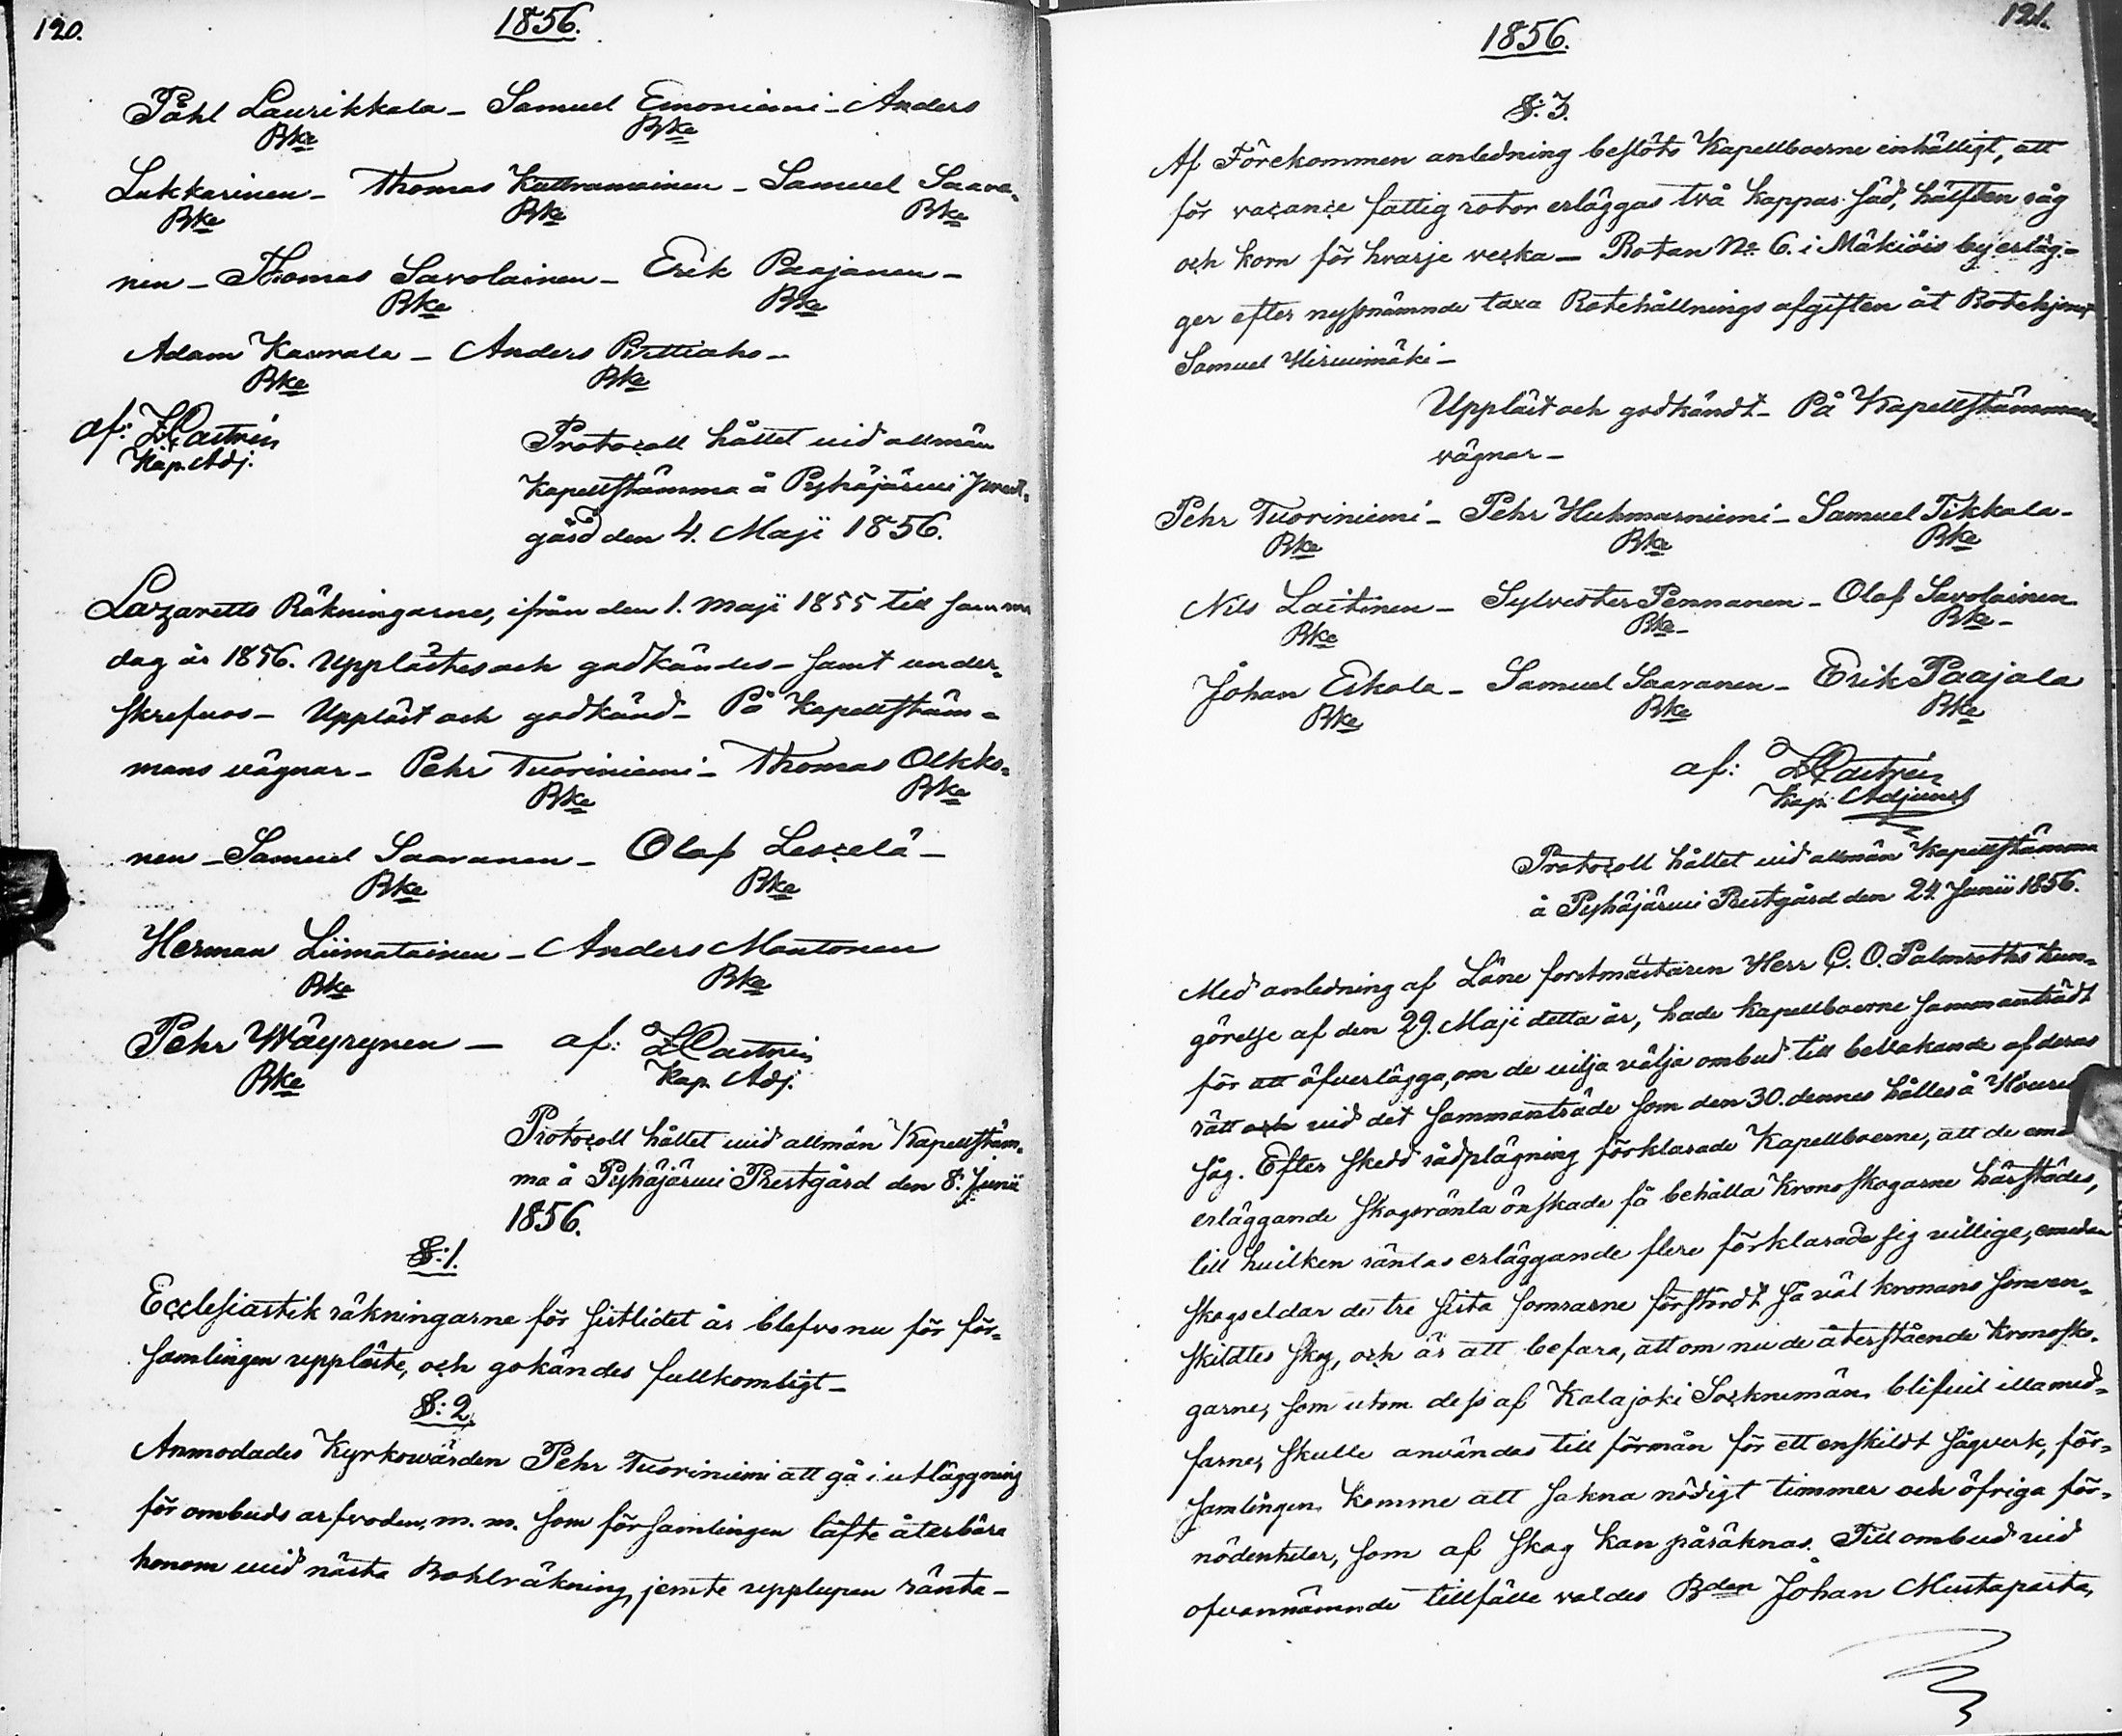 120.
1856.
Påhl Laurikkala - Samuel Emoniemi - Anders
Bke Bke
Lukkarinen - Thomas Kuttramainen - Samuel Saara-
Bke Bke Bke
nen - Thomas Savolainen - Erik Paajanen -
Bke Bke
Adam Kaurala - Anders Pirttiaho -
Bke Bke
af: ZCastrén
Kap. Adj.
Protocoll hållet vid allmän
Kapellstämma å Pyhäjärvi Prest-
gård den 4. Maji 1856.
Lazaretts Räkningarne, ifrån den 1. Maji 1855 till samma
dag år 1856. Upplästes och godkändes - samt under-
skrefvos - Uppläst och godkänd - På Kapellstäm-
mans vägnar - Pehr Tuoriniemi - Thomas Olkko-
Bke Bke
nen - Samuel Saaranen - Olaf Leskelä -
Bke Bke
Herman Liimatainen - Anders Mantonen
Bke Bke
Pehr Wäyrynen - af: ZCastrén
Bke Kap. Adj.
Protocoll hållet vid allmän Kapellstäm-
ma å Pyhäjärvi Prestgård den 8. Junii
1856.
§: 1.
Ecclesiastik räkningarne för sistlidet år blefvo nu för för-
samlingen uppläste, och gokändes fullkomligt -
§: 2.
Anmodades Kyrkowärden Pehr Tuoriniemi att gå i utläggning
för ombuds arfvoden, m. m. som församlingen låfte återbära
honom vid nästa Bohlräkning, jemte upplupen ränta -
121.
1856.
§: 3.
Af Förekommen anledning beslöto Kapellboerne einhälligt, att
för vacance fattig rotor erläggas två kappar säd, hälften råg
och korn för hvarje vecka - Rotan No. 6. i Mäkiöis by erläg-
ger efter nyssnämnde taxa Rotehållnings afgiften åt Rotehjonet
Samuel Hirvimäki -
Uppläst och godkändt - På Kapellstämmans
vägnar -
Pehr Tuoriniemi - Pehr Huhmarniemi - Samuel Tikkala -
Bke Bke Bke
Nils Laitinen - Sylvester Pennanen - Olaf Savolainen
Bke Bke - Bke -
Johan Eskola - Samuel Saaranen - Erik Paajala
Bke Bke Bke
af: ZCastrén
Kap. Adjunct
Protocoll hållet vid allmän Kapellstämma
å Pyhäjärvi Prestgård den 24 Junii 1856.
Med anledning af Läne forstmästaren Herr C. O. Palmroths kun-
görelse af den 29. Maji detta år, hade Kapellboerne sammanträdt
för att öfverlägga, om de vilja välja ombud till bevakande af deras
rätt och vid det sammanträde som den 30. dennes hålles å
såg. Efter skedd rådplägning förklarade Kapellboerne, att de emot
erläggande skogsränta önskade få behålla Kronoskogarne härstädes,
till hvilken räntas erläggande flere förklarade sig villige, emedan
skogseldar de tre sista somrarne förstördt så väl kronans som en-
skildtes skog, och är att befara, att om nu de återstående Kronosko-
garne, som utom dess af Kalajoki Socknemän blifvit illa med-
farne, skulle användas till förmån för ett enskildt sågverk, för-
samlingen komme att sakna nödigt timmer och öfriga för-
nödenheter, som af skog kan påräknas. Till ombud vid
ofvannämnde tillfälle valdes Bden Johan Mustaparta,